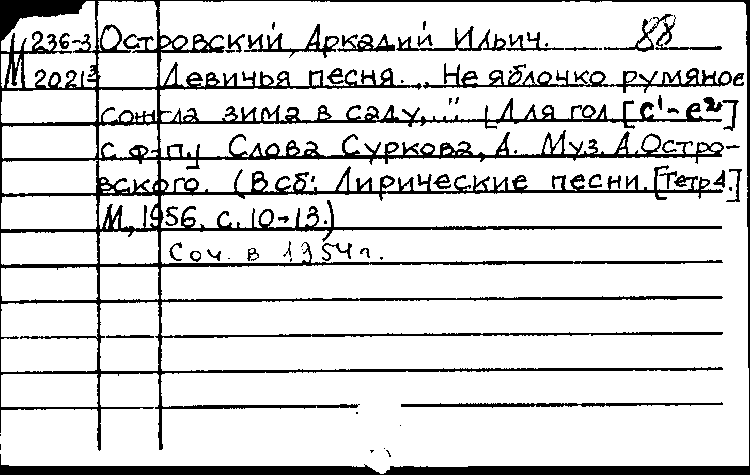 М 236-3 Островский, Аркадий Ильич. 88
М 2021³ Девичья песня. „Не яблочко румяное
сожгла зима в саду,..." [Для гол. [c¹-e²]
с ф-п.] Слова Суркова, А. Муз. А. Остро-
вского. (В сб: Лирические песни. [Тетр 1.]
М, 1956, с. 10-13.)
Соч. в 1954 г.